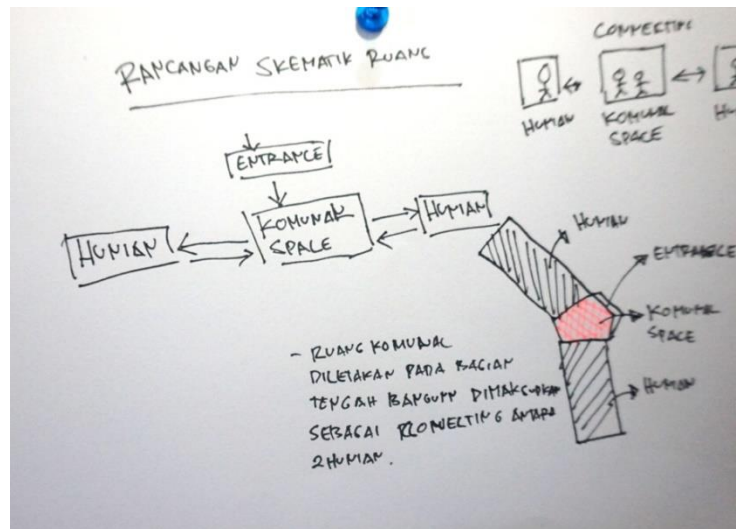 RANCANGAN SKEMATIK RUANG
CONNECTING
HUMAN
KOMUNAL
SPACE
HU
ENTRANCE
HUMAN
KOMUNAL
SPACE
HUMAN
HUMAN
ENTRANCE
KOMUNAL
SPACE
HUMAN
- RUANG KOMUNAL
DILETAKAN PADA BAGIAN
TENGAH BANGUNN DIMAKSUDKAN
SEBAGAI CONNECTING ANTARA
2 HUNIAN.